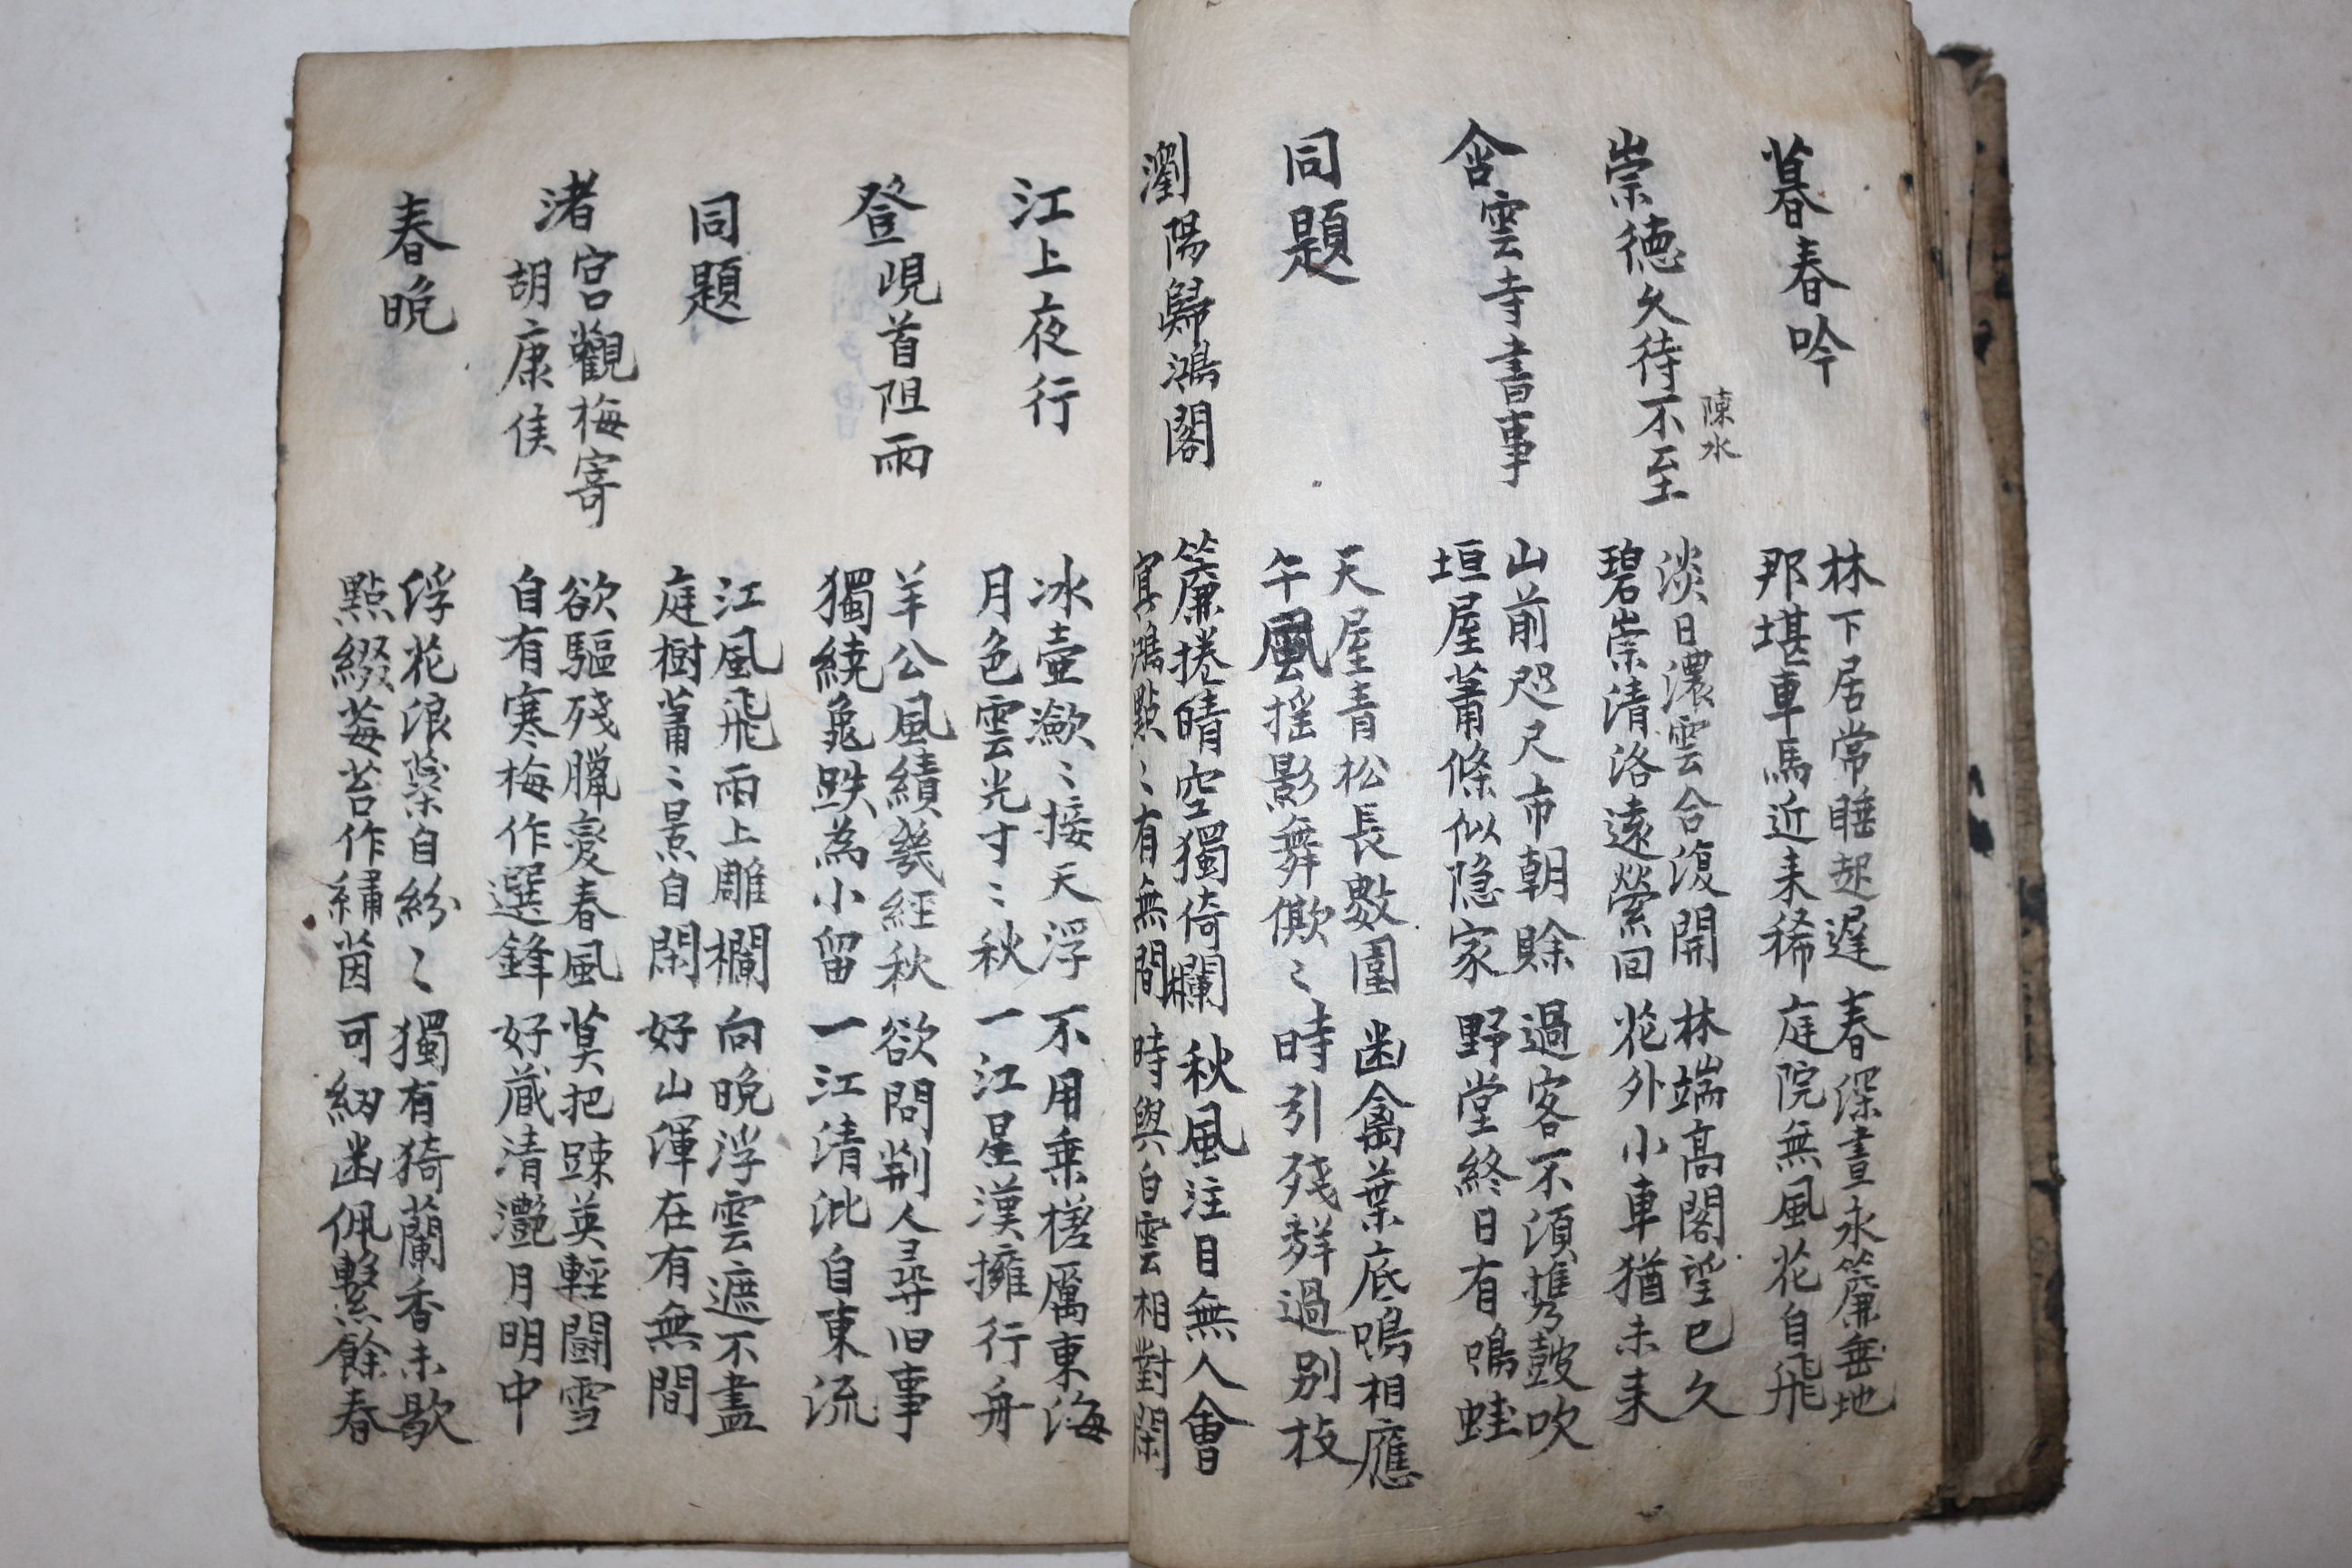 暮春吟
林下居常睡起遲 春深晝永簾垂地
那堪車馬近来稀 庭院無風花自飛
崇徳久待不至
陳水
淡日濃雲合復開 林端髙閣望已久
碧崇清洛遠縈回 花外小車猶未来
含雲寺書事
山前咫尺市朝賖 過客不須携皷吹
垣屋蕭條似隠家 野堂終日有鳴蛙
同題
天屋青松長數圍 幽禽葉底鳴相應
午風揺影舞僛〻 時引殘觧過别枝
瀏陽歸鴻閣
簾捲晴空獨倚欄 秋風注目無人會
冥鴻點〻有無間 時與白雲相對閑
江上夜行
冰壷瀲〻接天浮 不用乗槎厲東海
月色雲光寸〻秋 一江星漢擁行舟
登峴首阻雨
羊公風績幾經秋 欲問荆人尋旧事
獨繞龜趺為小留 一江清泚自東流
同題
江風飛雨上雕欄 向晩浮雲遮不盡
庭樹蕭〻景自閑 好山渾在有無間
渚宮觀梅寄
胡康侯
欲驅殘臘變春風 莫把踈英輕闘雪
自有寒梅作選鋒 好蔵清灧月明中
春晩
俘花浪蘂自紛〻 獨有猗蘭香未歇
點綴莓苔作繡茵 可紉幽佩繫餘春